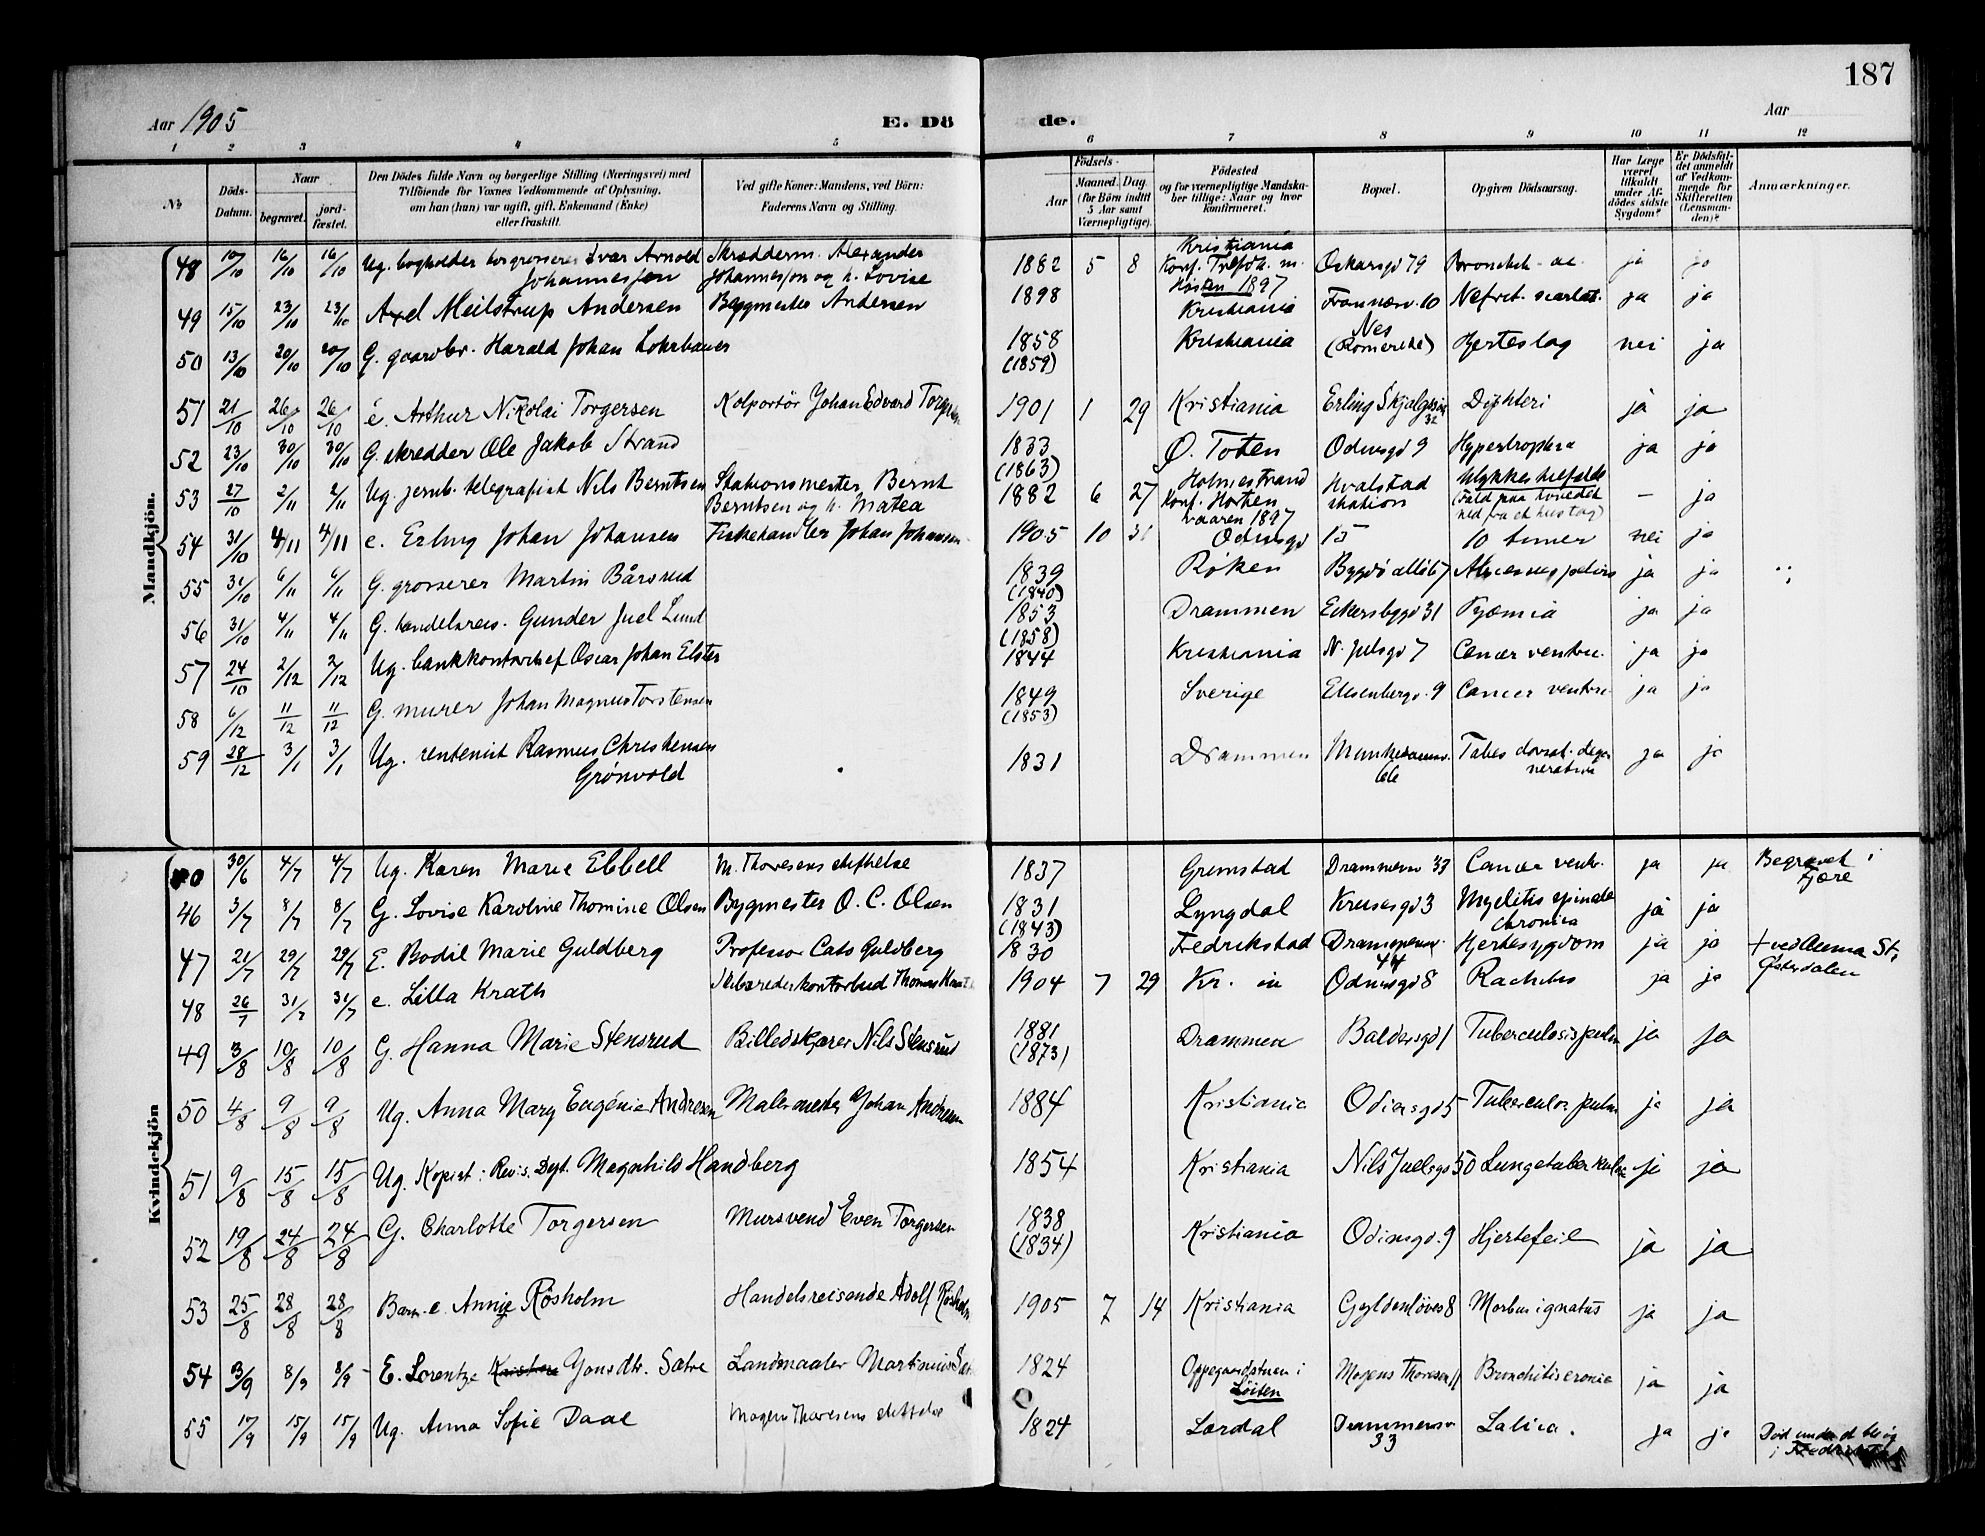 187
Aar 1905
E. Dö de.
Aar
1 2 3 4 5 6 7 8 9 10 11 12
No
Döds-Datum.
Naar
begravet.
jord-fæstet.
Den Dödes fulde Navn og borgerlige Stilling (Næringsvei) med
Tilföiende for Voxnes Vedkommende af Oplysning,
om han (hun) var ugift, gift, Enkemand (Enke)
eller fraskilt.
Ved gifte Koner: Mandens, ved Börn:
Faderens Navn og Stilling.
Födsels-
Aar
Maaned. Dag.
(for Börn indtil
5 Aar samt
Værnepligtige).
Födested
og for værnepligtige Mandska-
ber tillige: Naar og hvor
konfirmeret.
Bopæl.
Opgiven Dödsaarsag.
Har Læge
været
tilkaldt
under Af-
dödes sidste
Sygdom?
Er Dödsfal-
det anmeldt
af Vedkom-
mende for
Skifteretten
(Lensman-
den)?
Anmærkninger.
Mandkjön.
48 10/10 16/10 16/10 Ug. bogholder Ivar Arnold Johannesson Skrædderm. Alexander Johannesson og h. Lovise 1882 5 8 Kristiania Konf. m. 1897 Oskarsgd 79 ja ja
49 15/10 23/10 23/10 Axel Meilstrup Andersen Bygmester Andersen 1898 Kristiania Frognerv. 10 Nefrit. scarlat. ja ja
50 13/10 20/10 20/10 G. gaardbr. Harald Johan Lohrbauer 1858 (1859) Kristiania Nes (Romerike) Hjerteslag nei ja
51 21/10 26/10 26/10 e. Arthur Nikolai Torgersen Kolportör Johan Edvard Torgersen 1901 1 29 Kristiania Erling Skjalgssøn 32 Difteri ja ja
52 23/10 30/10 30/10 G. skredder Ole Jakob Strand 1833 (1863) Ø. Toten Odinsgd 9 ja ja
53 27/10 2/11 2/11 Ug. jernb. telegrafist Nils Berntsen Stationsmester Bernt Berntsen og h. Matea 1882 6 27 Holmestrand Konf. Horten vaaren 1897 Hvalstad station Ulykkestilfelde (fald paa hovedet ned fra et hustag) – ja
54 31/10 4/11 4/11 e. Erling Johan Johansen Fiskehandler Johan Johansen 1905 10 31 Odinsgd 15 10 timer nei ja
55 31/10 6/11 6/11 G. grosserer Martin Bårsrud 1839 (1840) Røken Bygdö allé 67 ja ja
56 31/10 4/11 4/11 G. handelsreis. Gunder Juel Lund 1853 (1858) Drammen Eckersbggd 31 Pyæmia ja ja
57 24/10 2/12 2/12 Ug. bankkontorchef Oscar Johan Elster 1844 Kristiania N. Julsgd 7 Cancer ventric. ja ja
58 6/12 11/12 11/12 G. murer Johan Magnus Torstensen 1849 (1853) Sverige Elisenbergv. 9 Cancer ventric. ja ja
59 28/12 3/1 3/1 Ug. rentenist Rasmus Christensen Grönvold 1831 Drammen Munkedamsv. 66 Tabes dorsal. degenerativa ja ja
Kvindekjön
40 30/6 4/7 4/7 Ug. Karen Marie Ebbell M. Thoresens stiftelse 1837 Grimstad Drammensv 33 Cancer ventr. ja ja Begravet i Fjære
46 3/7 8/7 8/7 G. Lovise Karoline Thomine Olsen Bygmester O. C. Olsen 1831 (1843) Lyngdal Krusesgd 3 Myelitis spinale chronica ja ja
47 21/7 29/7 29/7 E. Bodil Marie Guldberg Professor Cato Guldberg 1830 Fredrikstad Drammensv. 44 Hjertesygdom ja ja + ved Auma St, Østerdalen
48 26/7 31/7 31/7 e. Lilla Krath Skibsrederkontorbud Thomas Krath 1904 7 29 Kr. ia Odinsgd 8 Rachitis ja ja
49 3/8 10/8 10/8 G. Hanna Marie Stensrud Billedskjærer Nils Stensrud 1881 (1873) Drammen Baldersgd 1 Tuberculosis pulm ja ja
50 4/8 9/8 9/8 Ug. Anna Mary Eugénie Andresen Malermester Johan Andresen 1884 Kristiania Odinsgd 5 Tuberculos pulm ja ja
51 9/8 15/8 15/8 Ug. Kopist i Revis. Dept. Magnhild Handberg 1854 Kristiania Nils Juelsgd 50 Lungetuberkulose ja ja
52 19/8 24/8 24/8 G. Charlotte Torgersen Mursvend Even Torgersen 1838 (1834) Kristiania Odinsgd. 9 Hjertefeil ja ja
53 25/8 28/8 28/8 Barn. e. Annie Rösholm Handelsreisende Adolf Rösholm 1905 7 14 Kristiania Gyldenløves 8 Morbus ignotus ja ja
54 3/9 8/9 8/9 E. Lorentze Jonsdtr. Sætre Landmaaler Martinius 1824 Oppegaardstuen i Løiten Mogens Thoresen 11 Bronchitis cronic ja ja
55 17/9 15/9 15/9 Ug. Anna Sofie Daae Mogens Thoresens stiftelse 1824 Lærdal Drammensv 33 ja ja Död under et besög i